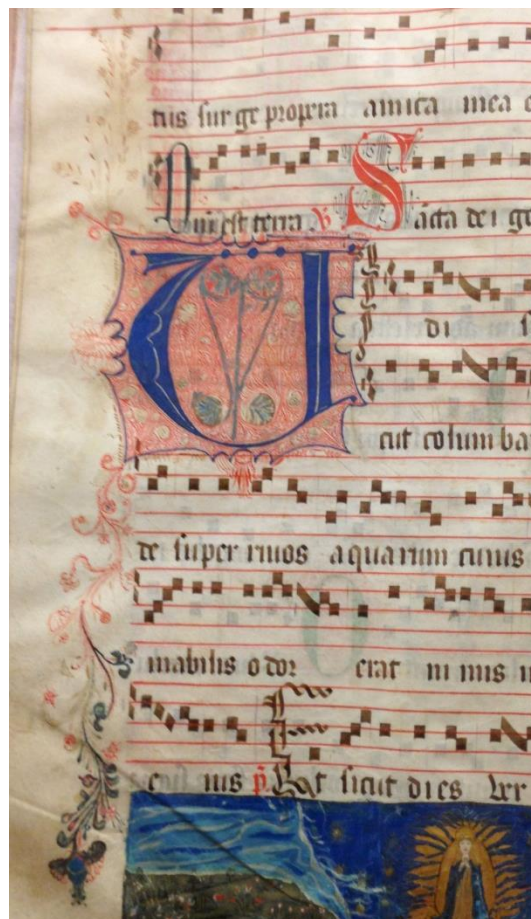 tus surge propera amica mea
est terra ℣ Sācta dei ge
Vi di s
cut columba
de super riuos aquarum cuiuus
mabilis odor erat ni mis i
e ius p̄ Et sicut dies ver